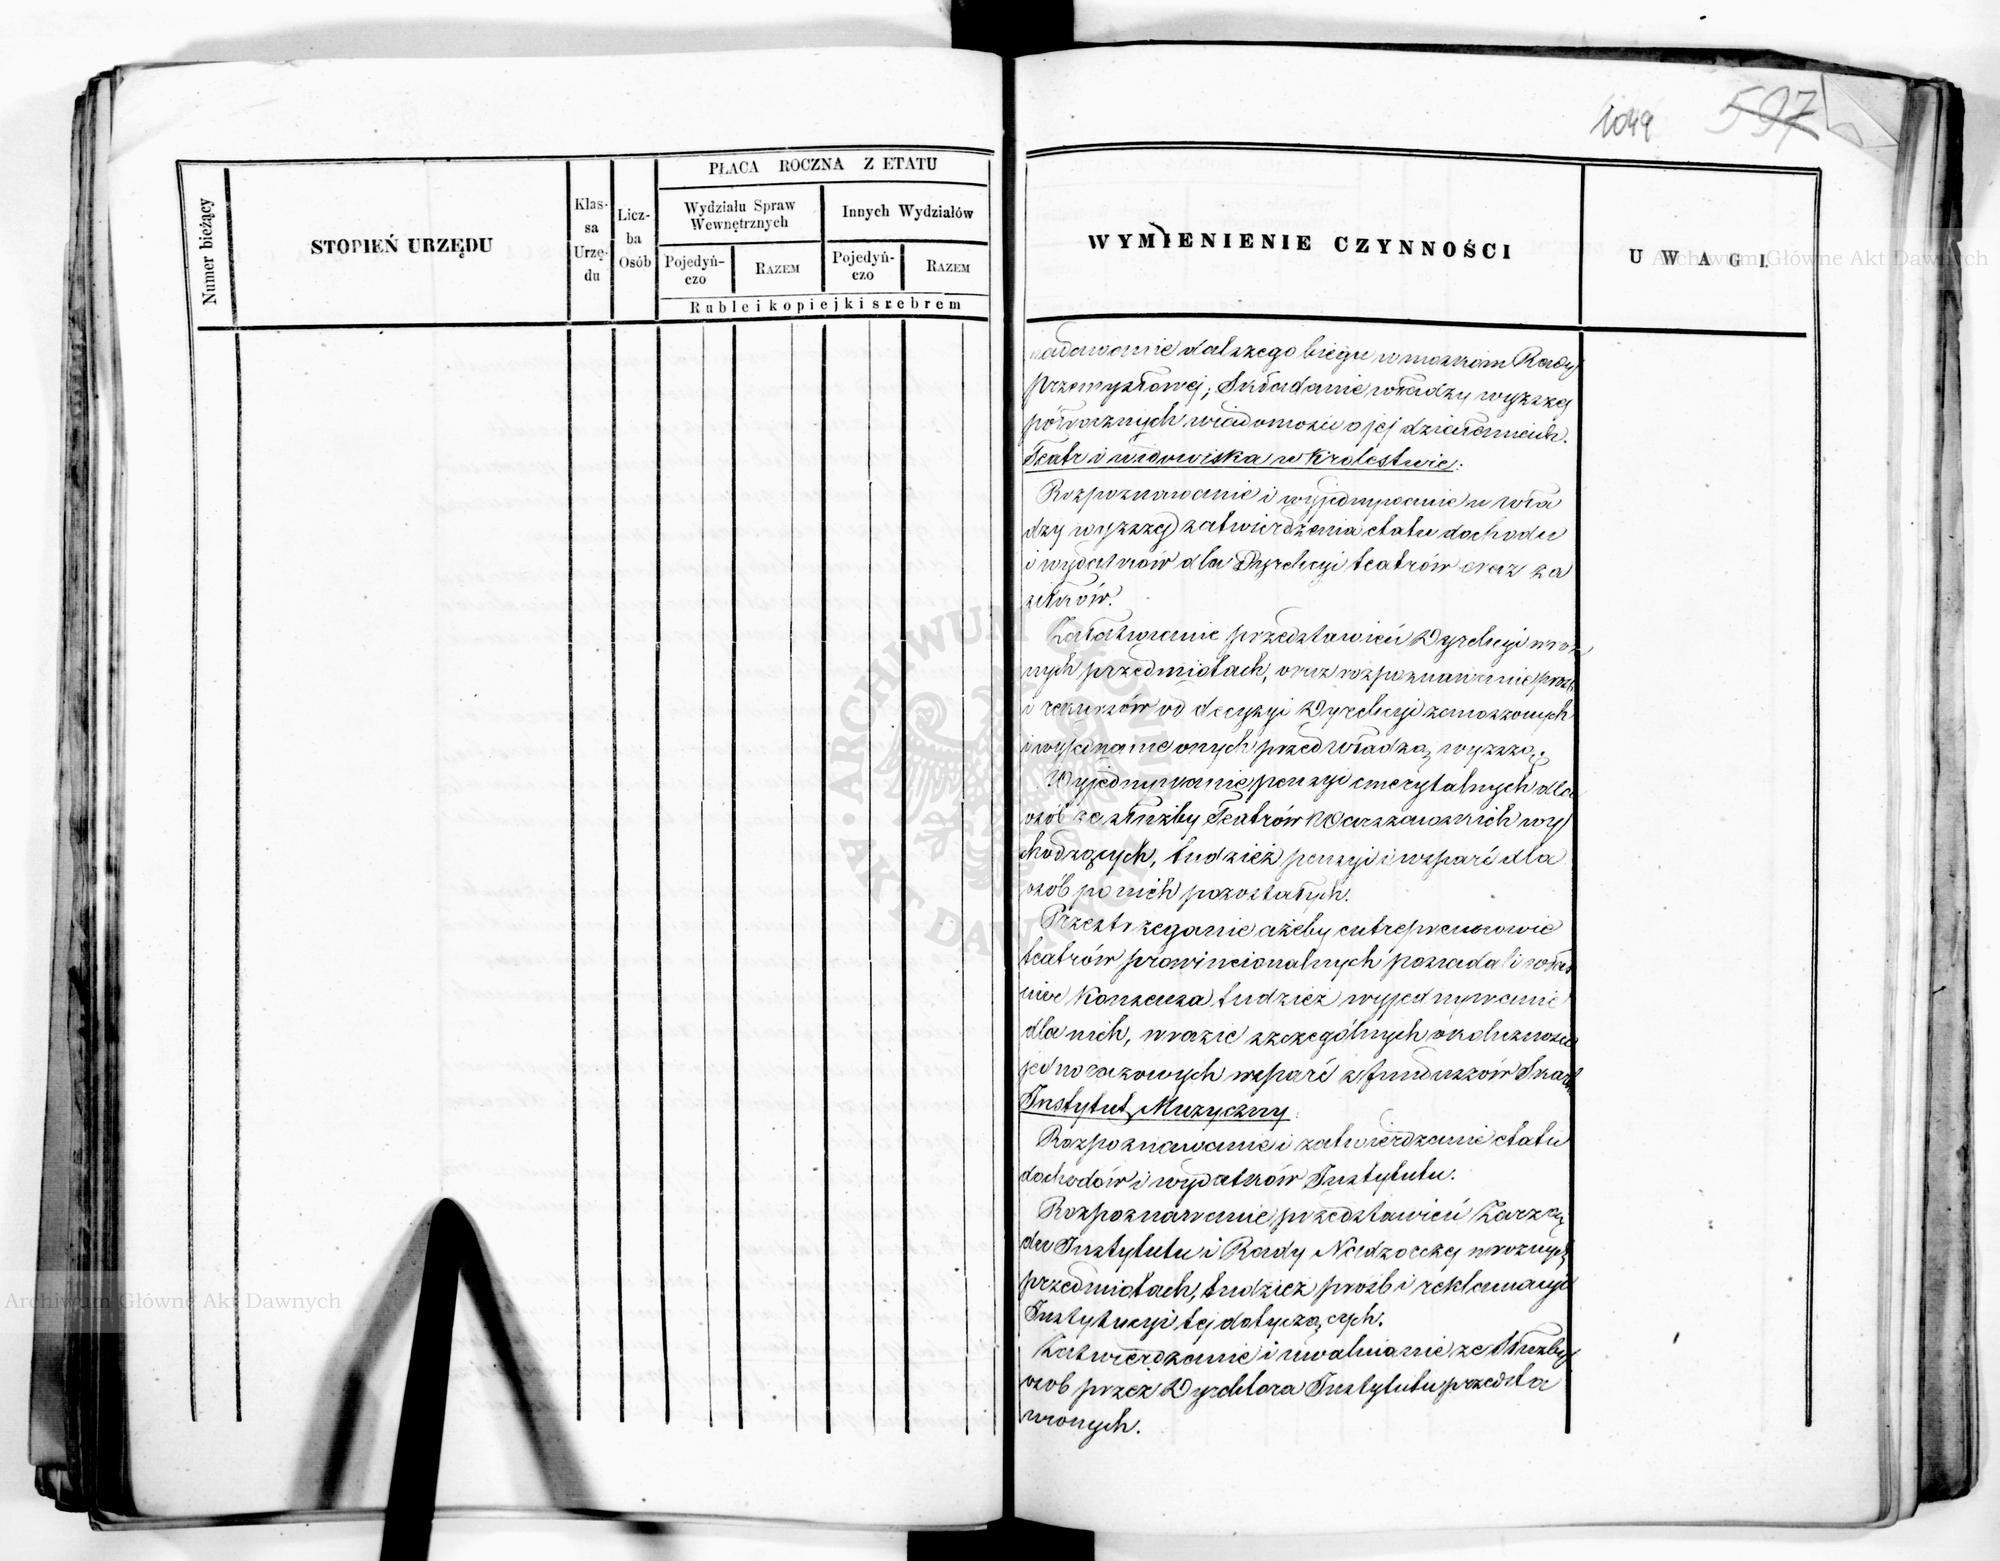 Numer bieżący
STOPIEŃ URZĘDU
Klas-
sa
Urzę-
du
Licz-
ba
Osób
PŁACA ROCZNA Z ETATU
Wydziału Spraw
Wewnętrznych
Innych Wydziałów
Pojedyń-
czo
RAZEM
Pojedyń-
czo
RAZEM
Ruble i kopiejki srebrem
1049 597
WYMIENIENIE CZYNNOŚCI
UWAGI.
nadawanie dalszego biegu wnioskom Rady
przemysłowej; Składanie władzy wyższej
półrocznych wiadomości o jej działaniach.
Teatr i widowiska w Królestwie.
Rozpoznawanie i wyjednywanie u wła
dzy wyższej zatwierdzenia etatu dochodu
i wydatków dla Dyrekcyi teatrów oraz za
siłków.
Załatwianie przedstawień Dyrekcyi w róż
nych przedmiotach, oraz rozpoznawanie próśb
i rekursów od decyzyi Dyrekcyi zanoszonych
i wyjednanie onych przed władzą wyższą.
Wyjednywanie pensyi emerytalnych dla
osób ze służby Teatrów Warszawskich wy
chodzących, tudzież pensyi i wsparć dla
osób po nich pozostałych.
Przestrzeganie ażeby entreprenerowie
teatrów prowincionalnych posiadali właś
ciwe Konsensa, tudzież wyjednywanie
dla nich, w razie szczególnych okoliczności
jednorazowych wsparć z funduszów Skarbu
Instytut Muzyczny.
Rozpoznawanie i zatwierdzanie etatu
dochodów i wydatków Instytutu.
Rozpoznawanie przedstawień Zarzą
du Instytutu i Rady Nadzorczej w różnych
przedmiotach, tudzież prośb i reklamacyi
Instytucyi tej dotyczących.
Zatwierdzanie i uwalnianie ze służby
osób przez Dyrektora Instytutu przedsta
wionych.
ARCHIWUM GŁÓWNE AKT DAWNYCH
Archiwum Główne Akt Dawnych
Archiwum Główne Akt Dawnych